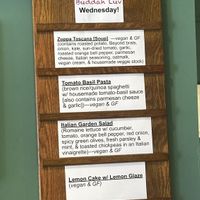 Buddah Luv
Wednesday!
Zuppa Toscana [Soup] —vegan & GF
(contains roasted potato, Beyond brats,
onion, kale, sun-dried tomato, garlic,
roasted orange bell pepper, parmesan
cheese, Italian seasoning, oatmilk,
vegan cream, & housemade veggie stock)
Tomato Basil Pasta
(brown rice/quinoa spaghetti
w/ housemade tomato-basil sauce
[also contains parmesan cheese
& garlic])—vegan & GF
Italian Garden Salad
(Romaine lettuce w/ cucumber,
tomato, orange bell pepper, red onion,
spicy green olives, fresh parsley &
mint, & toasted chickpeas in an Italian
vinaigrette)—vegan & GF
Lemon Cake w/ Lemon Glaze
(vegan & GF)